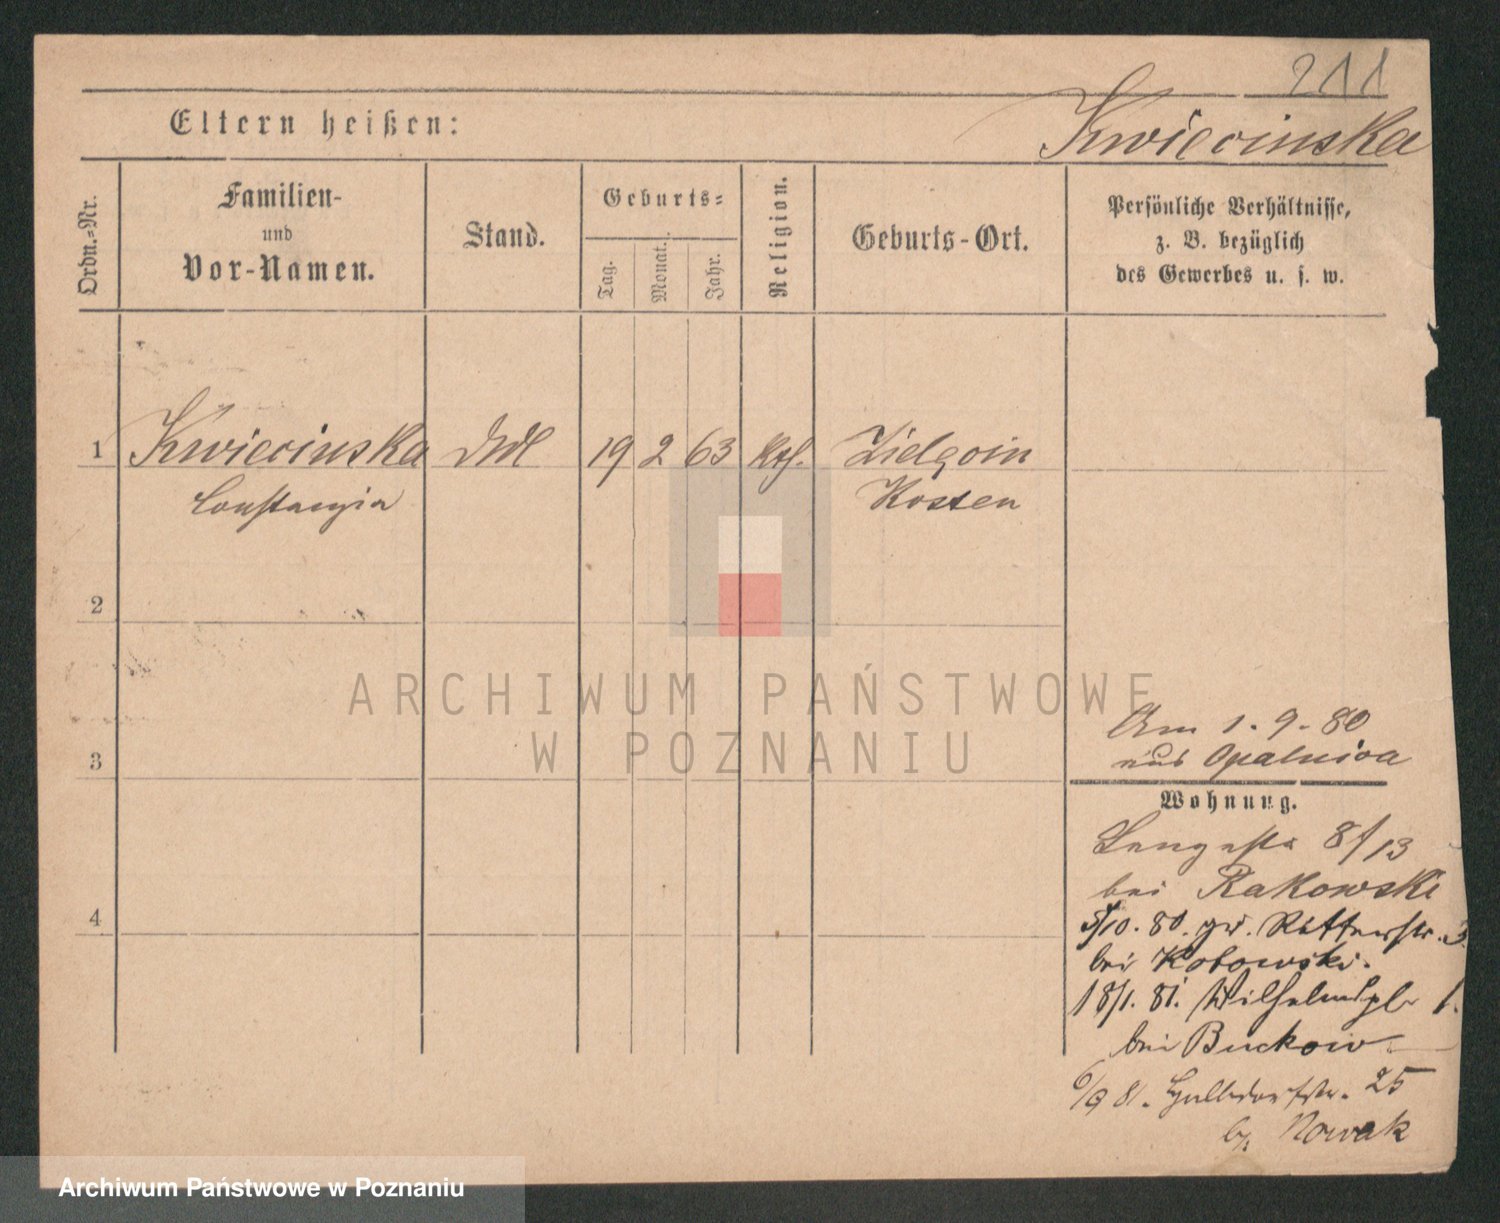 211
Eltern heißen:
Kwiecinska
Ordn.-Nr.
Familien-
und
Vor-Namen.
Stand.
Geburts-
Tag.
Monat.
Jahr.
Religion.
Geburts-Ort.
Persönliche Verhältnisse,
z. B. bezüglich
des Gewerbes u. s. w.
1 Kwiecinska 19 2 63 Kth.
Constanzia Kosten
2
3
4
Am 1.9.80
aus Opalenica
Wohnung.
Langestr 8/13
bei Rakowski
5/10.80. Ritterstr. 3
bei Kotowski.
18/1.81. Wilhelmspl. 1.
bei Buckow
6/9 81. 25
b/ Nowak
ARCHIWUM PAŃSTWOWE
W POZNANIU
Archiwum Państwowe w Poznaniu